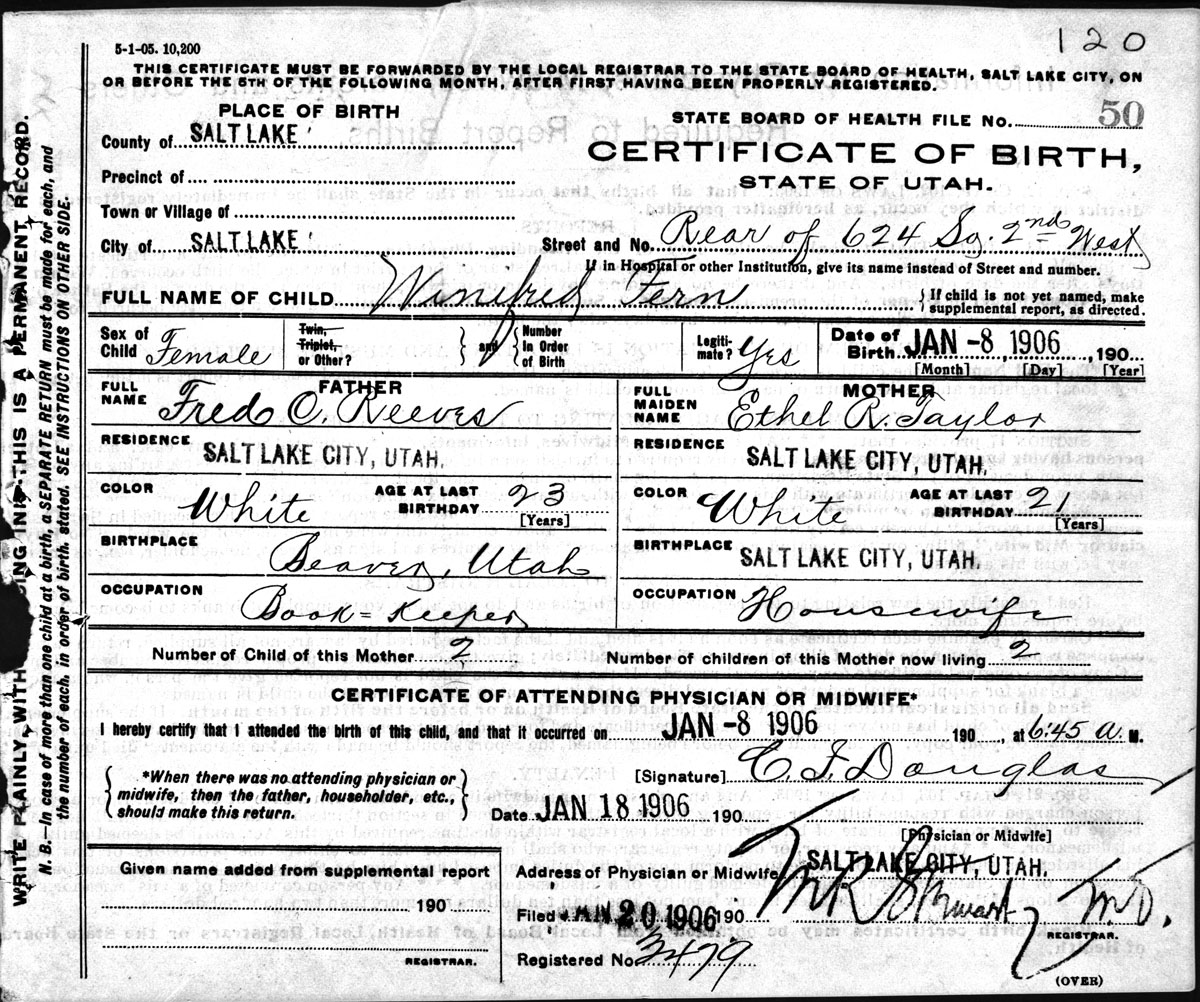 120
5-1-05. 10,200
THIS CERTIFICATE MUST BE FORWARDED BY THE LOCAL REGISTRAR TO THE STATE BOARD OF HEALTH, SALT LAKE CITY, ON
OR BEFORE THE 5TH OF THE FOLLOWING MONTH, AFTER FIRST HAVING BEEN PROPERLY REGISTERED.
PLACE OF BIRTH
STATE BOARD OF HEALTH FILE NO. 50
County of SALT LAKE
CERTIFICATE OF BIRTH,
STATE OF UTAH.
Precinct of
Town or Village of
City of SALT LAKE
Street and No. Rear of 624 So. 2nd West
If in Hospital or other Institution, give its name instead of Street and number.
FULL NAME OF CHILD Winefred Fern
{If child is not yet named, make
supplemental report, as directed.
Sex of Child Female
Twin, Triplet, or Other?
and
Number In Order of Birth
Legitimate? Yes
Date of Birth JAN -8 1906, 190
[Month] [Day] [Year]
FATHER
FULL NAME Fred C. Reeves
MOTHER
FULL MAIDEN NAME Ethel R. Taylor
RESIDENCE SALT LAKE CITY, UTAH.
RESIDENCE SALT LAKE CITY, UTAH.
COLOR White AGE AT LAST BIRTHDAY 23 [Years]
COLOR White AGE AT LAST BIRTHDAY 21 [Years]
BIRTHPLACE Beaver, Utah
BIRTHPLACE SALT LAKE CITY, UTAH.
OCCUPATION Book=keeper
OCCUPATION Housewif
Number of Child of this Mother 2
Number of children of this Mother now living 2
CERTIFICATE OF ATTENDING PHYSICIAN OR MIDWIFE*
I hereby certify that I attended the birth of this child, and that it occurred on JAN -8 1906 190, at 6:45 a. M.
{*When there was no attending physician or
midwife, then the father, householder, etc.,
should make this return.}
[Signature] E. F. Douglas
Date JAN 18 1906 190
[Physician or Midwife]
Given name added from supplemental report
190
REGISTRAR.
Address of Physician or Midwife SALT LAKE CITY, UTAH.
Filed JAN 20 1906 190
M.D.
REGISTRAR.
Registered No. 3479
(OVER)
WRITE PLAINLY WITH INK—THIS IS A PERMANENT RECORD.
N. B. In case of more than one child at a birth, a SEPARATE RETURN must be made for each, and
the number of each, in order of birth, stated. SEE INSTRUCTIONS ON OTHER SIDE.